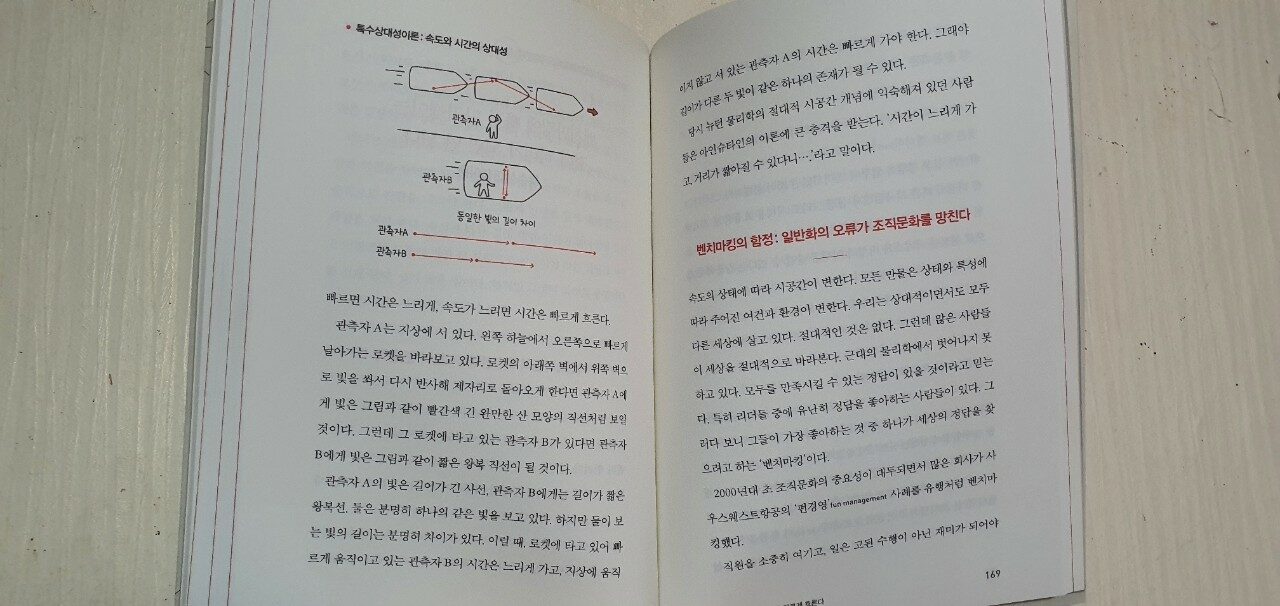 • 특수상대성이론: 속도와 시간의 상대성
관측자A
관측자B
동일한 빛의 길이 차이
관측자A
관측자B
빠르면 시간은 느리게, 속도가 느리면 시간은 빠르게 흐른다.
관측자 A는 지상에 서 있다. 왼쪽 하늘에서 오른쪽으로 빠르게
날아가는 로켓을 바라보고 있다. 로켓의 아래쪽 벽에서 위쪽 벽으
로 빛을 쏴서 다시 반사해 제자리로 돌아오게 한다면 관측자 A에
게 빛은 그림과 같이 빨간색 긴 완만한 산 모양의 직선처럼 보일
것이다. 그런데 그 로켓에 타고 있는 관측자 B가 있다면 관측자
B에게 빛은 그림과 같이 짧은 왕복 직선이 될 것이다.
관측자 A의 빛은 길이가 긴 사선, 관측자 B에게는 길이가 짧은
왕복선. 둘은 분명히 하나의 같은 빛을 보고 있다. 하지만 둘이 보
는 빛의 길이는 분명히 차이가 있다. 이럴 때, 로켓에 타고 있어 빠
르게 움직이고 있는 관측자 B의 시간은 느리게 가고, 지상에 움직
이지 않고 서 있는 관측자 A의 시간은 빠르게 가야 한다. 그래야
길이가 다른 두 빛이 같은 하나의 존재가 될 수 있다.
당시 뉴턴 물리학의 절대적 시공간 개념에 익숙해져 있던 사람
들은 아인슈타인의 이론에 큰 충격을 받는다. ‘시간이 느리게 가
고, 거리가 짧아질 수 있다니….’라고 말이다.
벤치마킹의 함정: 일반화의 오류가 조직문화를 망친다
속도의 상태에 따라 시공간이 변한다. 모든 만물은 상태와 특성에
따라 주어진 여건과 환경이 변한다. 우리는 상대적이면서도 모두
다른 세상에 살고 있다. 절대적인 것은 없다. 그런데 많은 사람들
이 세상을 절대적으로 바라본다. 근대의 물리학에서 벗어나지 못
하고 있다. 모두를 만족시킬 수 있는 정답이 있을 것이라고 믿는
다. 특히 리더들 중에 유난히 정답을 좋아하는 사람들이 있다. 그
러다 보니 그들이 가장 좋아하는 것 중 하나가 세상의 정답을 찾
으려고 하는 ‘벤치마킹’이다.
2000년대 초 조직문화의 중요성이 대두되면서 많은 회사가 사
우스웨스트항공의 ‘펀경영’fun management 사례를 유행처럼 벤치마
킹했다.
직원을 소중히 여기고, 일은 고된 수행이 아닌 재미가 되어야
169
흐른다